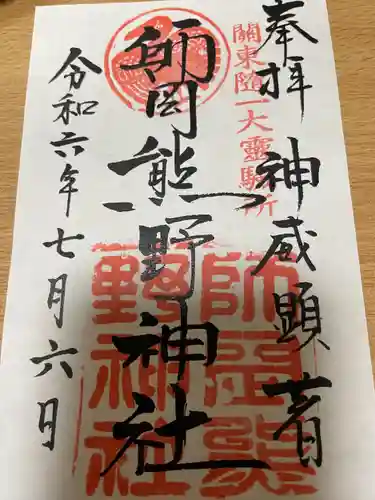 奉拝 神威顕著
關東随一大靈験所
師岡熊野神社
令和六年七月六日
師岡熊野神社